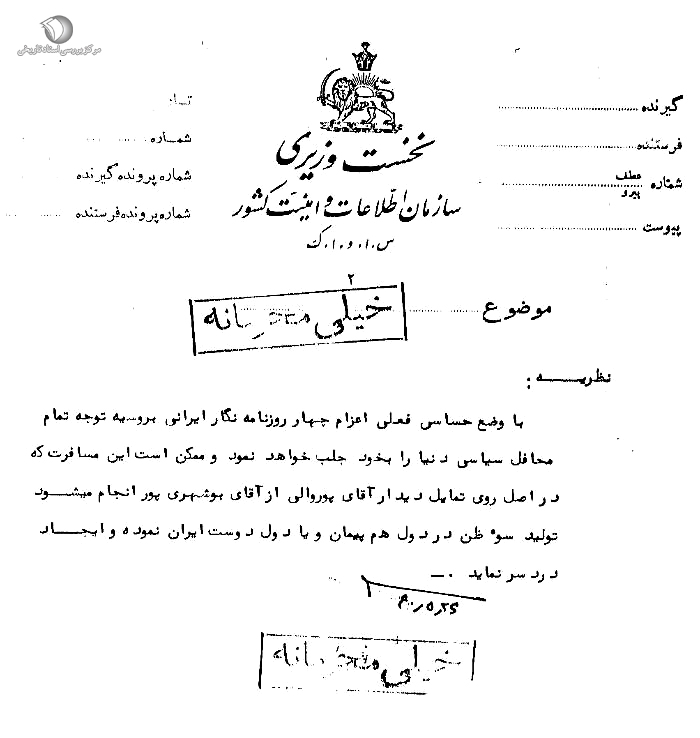 مرکز بررسی اسناد تاریخی
نخست وزیری
سازمان اطلاعات و امنیت کشور
س.ا.و.ا.ک
گیرنده
فرستنده
شماره عطف پیرو
پیوست
شماره
شماره پرونده گیرنده
شماره پرونده فرستنده
۲
موضوع
خیلی محرمانه
نظریه :
با وضع حساسی فعلی اعزام چهار روزنامه نگار ایرانی بروسیه توجه تمام
محافل سیاسی دنیا را بخود جلب خواهد نمود و ممکن است این مسافرت که
در اصل روی تمایل دیدار آقای پوروالی از آقای بوشهری پور انجام میشود
تولید سوء ظن در دول هم پیمان و یا دول دوست ایران نموده و ایجاد
درد سر نماید .ــ
خیلی محرمانه